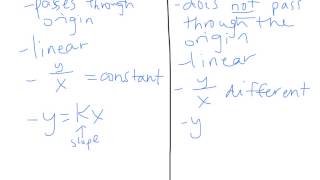 - passes through
origin
- linear
- y/x = constant
- y = Kx
slope
- does not pass
through the
origin
- linear
- y/x different
- y